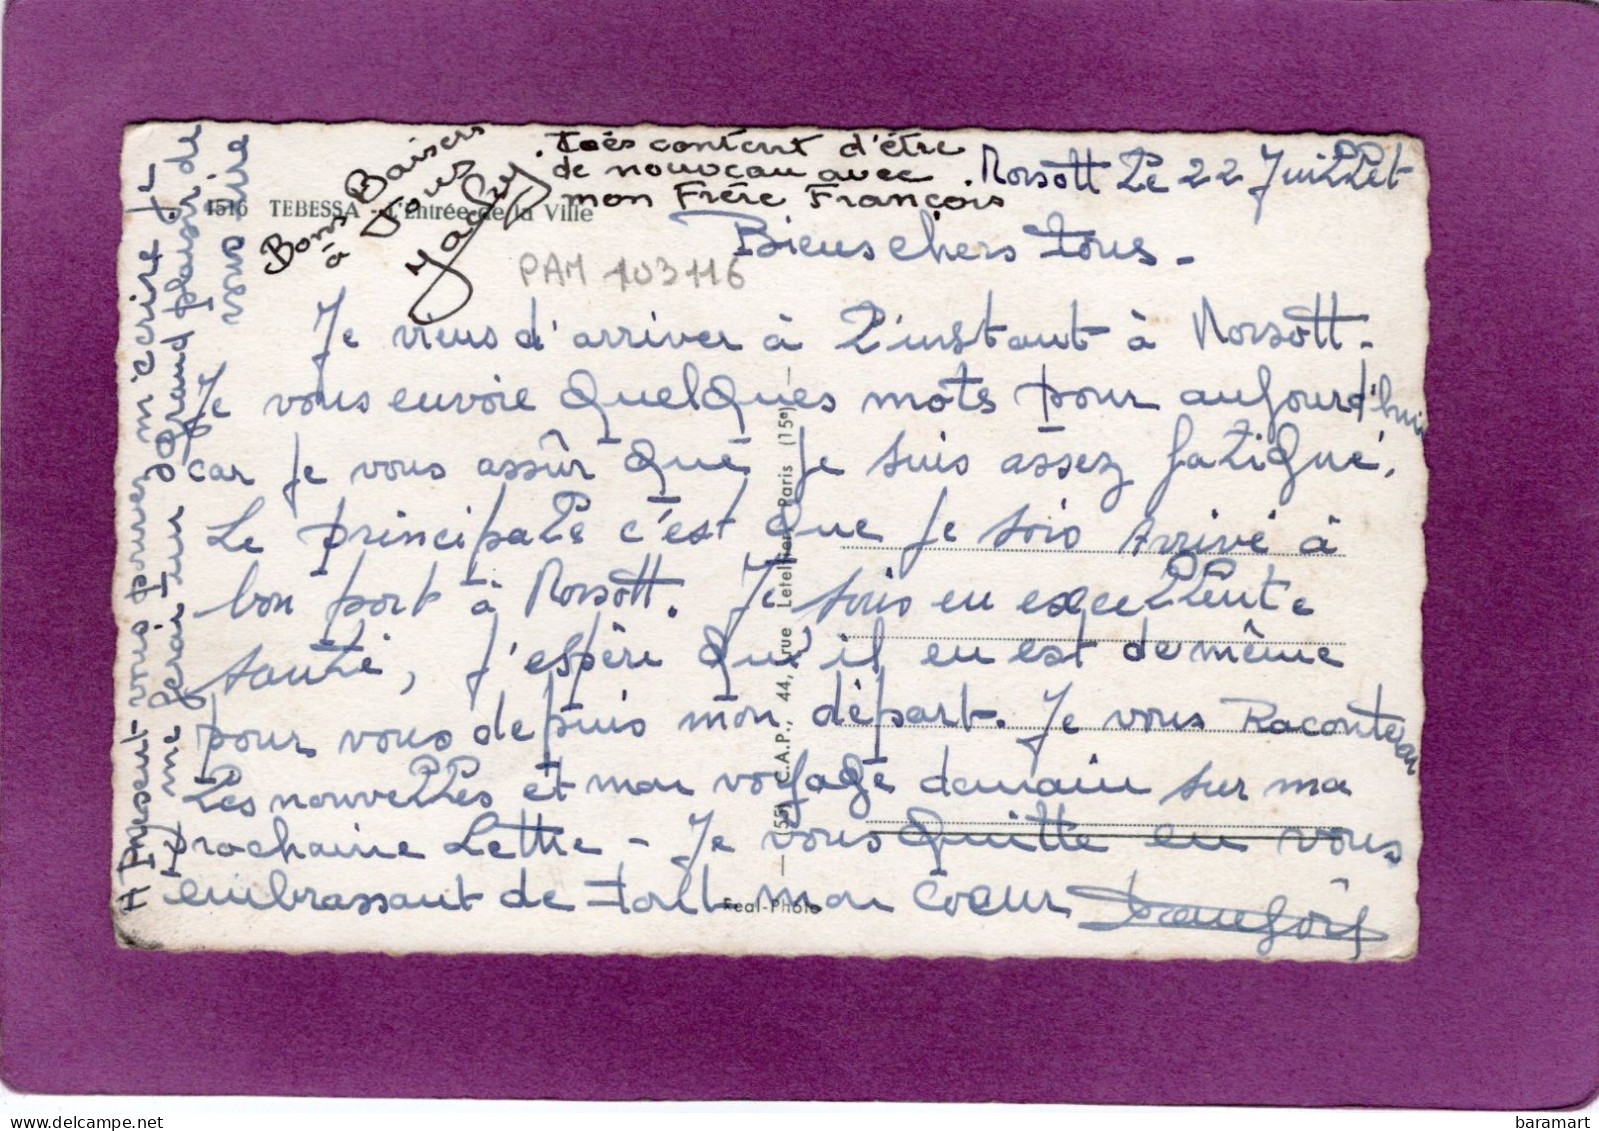 4516 TEBESSA - L'Entrée de la Ville
Bons Baisers
à Tous
Jacky
Toés content d'être
de nouveau avec
mon Frére François.
PAM 103116
Morsott Le 22 Juillet
Bieus chers tous -
Je viens d'arriver à L'instant à Morsott -
Je vous envoie quelques mots pour aujourd'hui
car je vous assûr que je suis assez fatigué.
Le principale c'est que je sois Arrivé à
bon port à Morsott. Je suis en excellente
santé, j'espère qu'il en est de même
pour vous depuis mon départ. Je vous Raconterai
Les nouvelles et mon voyage demain sur ma
prochaine Lettre - Je vous quitte en vous
embrassant de tout mon coeur
François
A Present vous pouvez m'ecrire et
me ferai un grand plaisir de
vous lire
(55) C.A.P., 44, rue Letellier, Paris (15e)
Real-Photo
baramart